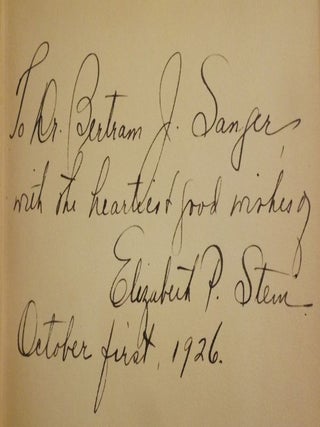 To Dr. Bertram J. Sanger,
with the heartiest good wishes of
Elizabeth P. Stein.
October first, 1926.